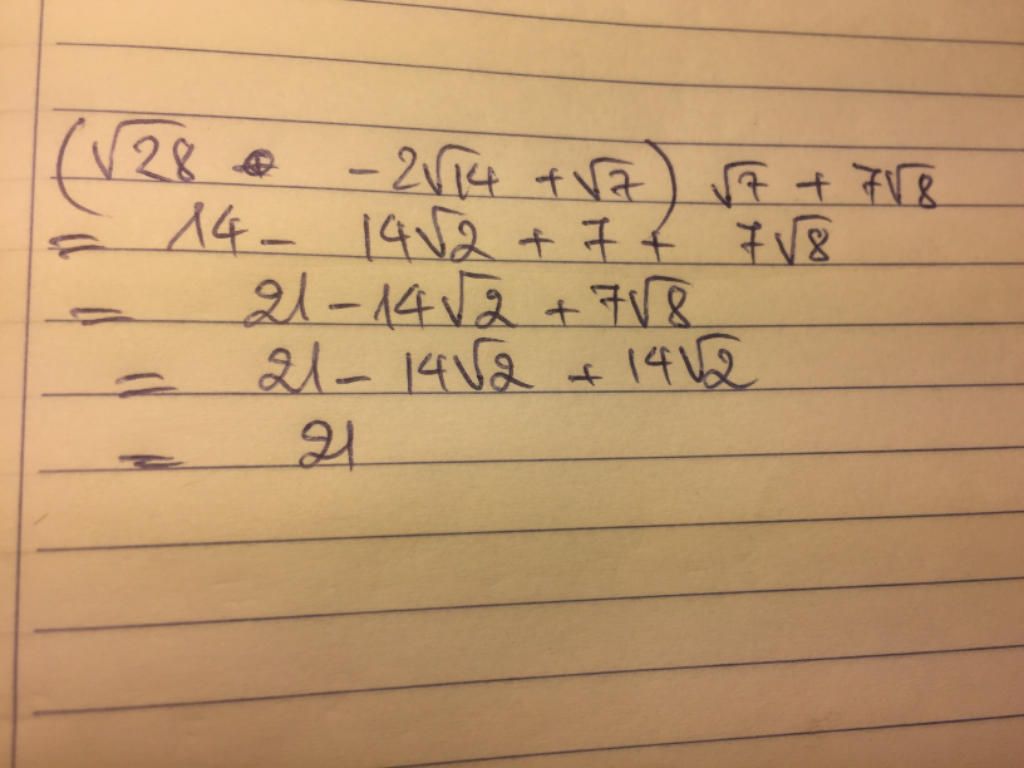 (√28 - 2√14 + √7) √7 + 7√8
= 14 - 14√2 + 7 + 7√8
= 21 - 14√2 + 7√8
= 21 - 14√2 + 14√2
= 21